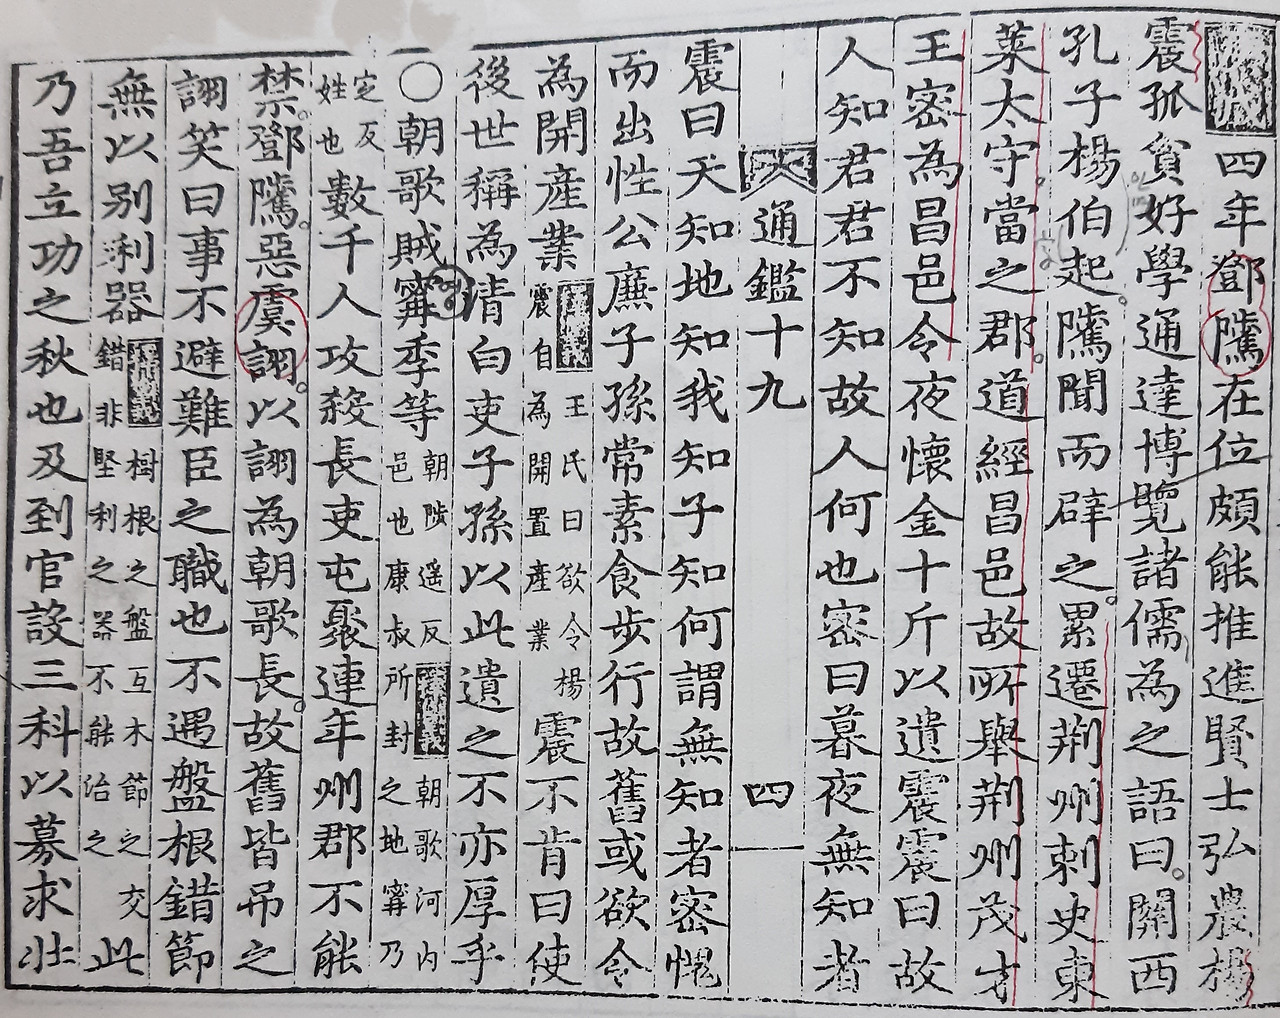 四年鄧騭在位頗能推進賢士弘農楊
震孤貧好學通達博覽諸儒為之語曰關西
孔子楊伯起騭聞而辟之累遷荆州刺史東
萊太守當之郡道經昌邑故所擧荆州茂才
王密為昌邑令夜懷金十斤以遺震震曰故
人知君君不知故人何也密曰暮夜無知者
通鑑十九 四
震曰天知地知我知子知何謂無知者密愧
而出性公廉子孫常素食步行故舊或欲令
為開產業
王氏曰欲令楊
震自為開置產業
震不肯曰使
後世稱為清白吏子孫以此遺之不亦厚乎
〇朝歌賊甯季等
朝陟遥反 朝歌河內
邑也康叔所封之地甯乃
定反
姓也
數千人攻殺長吏屯聚連年州郡不能
禁鄧騭惡虞詡以詡為朝歌長故舊皆吊之
詡笑曰事不避難臣之職也不遇盤根錯節
無以別利器
樹根之盤互木節之交
錯非堅利之器不能治之
此
乃吾立功之秋也及到官設三科以募求壯